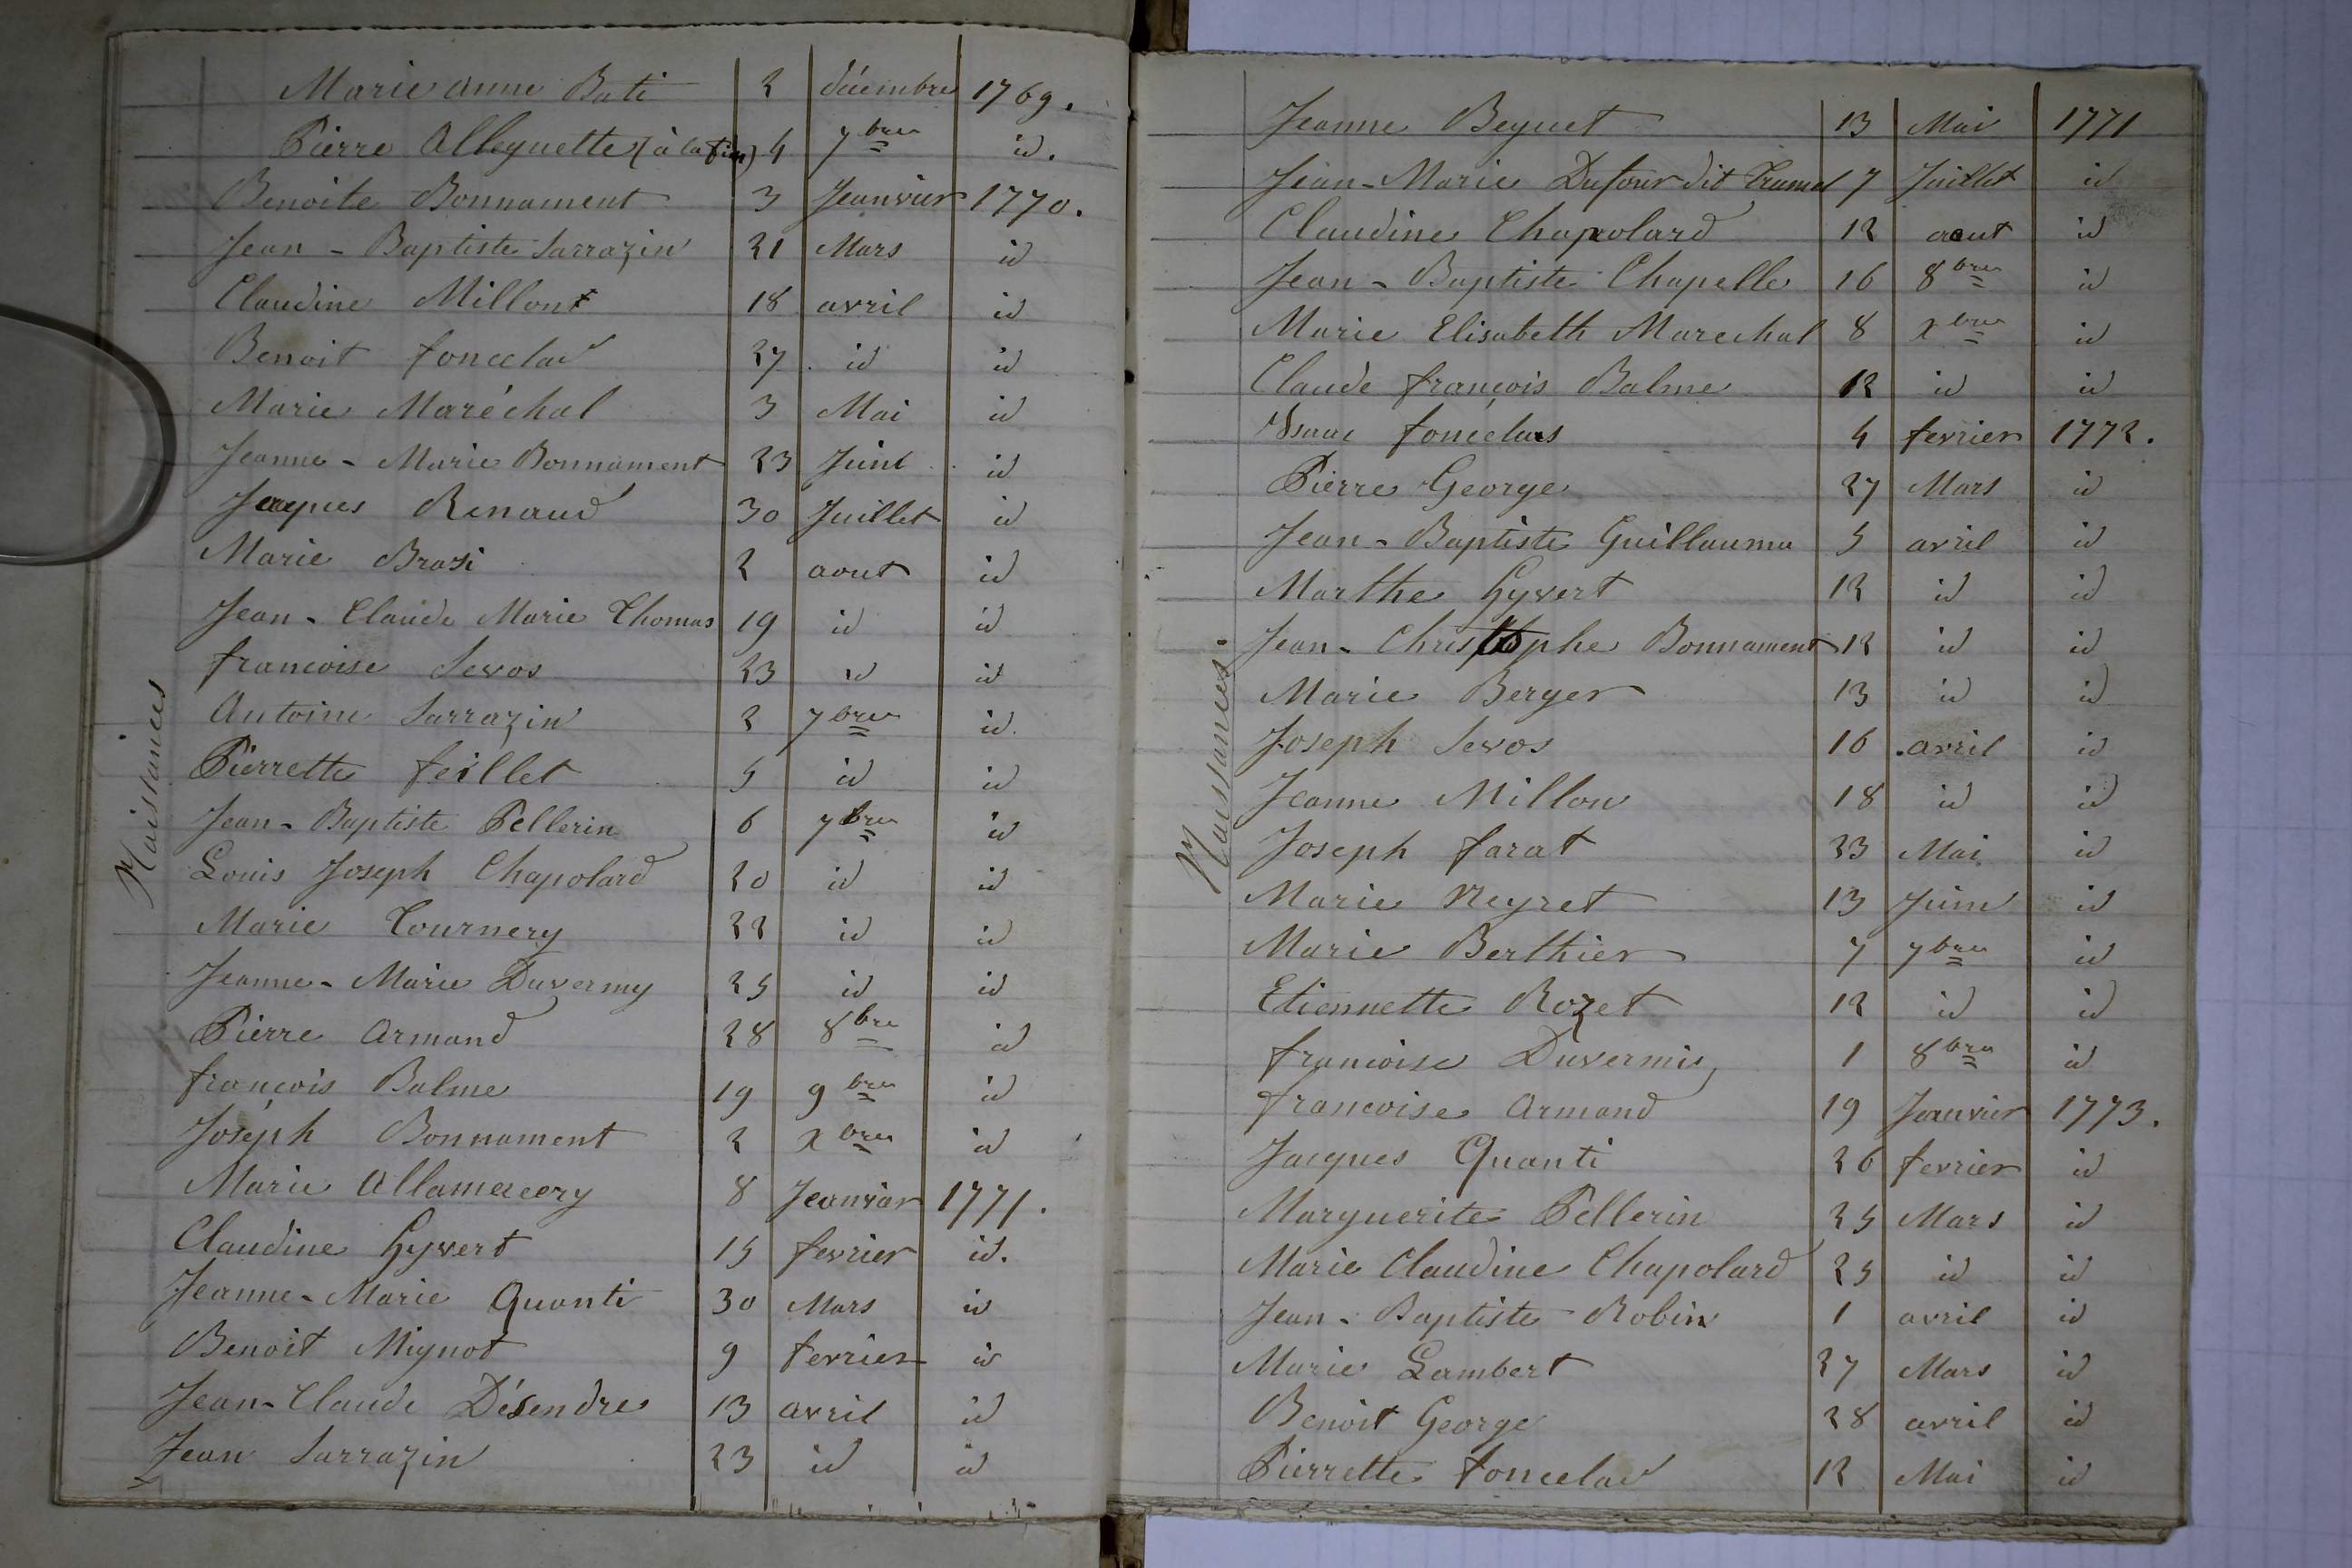 Marie anne Bati 2 décembre 1769.
Pierre Alleynette (à la fin) 4 7bre id.
Benoite Bonnament 3 Jeanvier 1770.
Jean - Baptiste Sarrazin 21 Mars id
Claudine Millont 18 avril id
Benoit fonclau 27 id id
Marie Maréchal 3 Mai id
Jeanne - Marie Bonnament 23 Juint id
Jacques Renaud 30 Juillet id
Marie Brasi 2 aout id
Jean - Claude Marie Thomas 19 id id
francoise Sevos 23 id id
Antoine Sarrazin 2 7bre id.
Pierrette feillet 5 id id
Jean - Baptiste Pellerin 6 7bre id
Louis Joseph Chapolard 20 id id
Marie Tournery 22 id id
Jeanne - Marie Duvermy 25 id id
Pierre Armand 28 8bre id
françois Balme 19 9bre id
Joseph Bonnament 2 xbre id
Marie Allamercery 8 Jeanvier 1771.
Claudine Gyvert 15 fevrier id.
Jeanne - Marie Quanti 30 Mars id
Benoit Mignot 9 fevrier id
Jean - Claude Désendre 13 avril id
Jean Sarrazin 23 id id
Naissances
Jeanne Beguet 13 Mai 1771
Jean - Marie Dufour dit Tramel 7 Juillet id
Claudine Chapolard 12 aout id
Jean - Baptiste Chapelle 16 8bre id
Marie Elisabeth Marechal 8 xbre id
Claude françois Balme 12 id id
Isaac fonclaus 4 fevrier 1772.
Pierre George 27 Mars id
Jean - Baptiste Guillauma 5 avril id
Marthe Gyvert 12 id id
Jean - Christophe Bonnament 12 id id
Marie Berger 13 id id
Joseph Sevos 16 avril id
Jeanne Millon 18 id id
Joseph farat 23 Mai id
Marie Neyret 13 Juin id
Marie Berthier 7 7bre id
Etiennette Rozet 12 id id
francoise Duvermis 1 8bre id
francoise Armand 19 Jeanvier 1773.
Jacques Quanti 26 fevrier id
Marguerite Pellerin 25 Mars id
Marie Claudine Chapolard 25 id id
Jean - Baptiste Robin 1 avril id
Marie Lambert 27 Mars id
Benoit George 28 avril id
Pierrette fonclau 12 Mai id
Naissances.